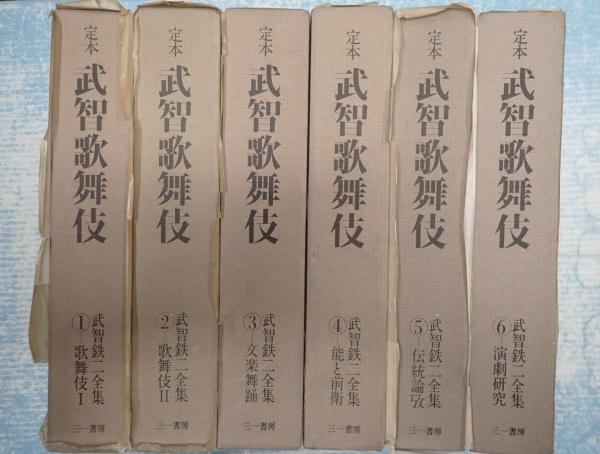 定本
武智歌舞伎
武智鉄二全集
①歌舞伎Ⅰ
三一書房
定本
武智歌舞伎
武智鉄二全集
②歌舞伎Ⅱ
三一書房
定本
武智歌舞伎
武智鉄二全集
③文楽舞踊
三一書房
定本
武智歌舞伎
武智鉄二全集
④能と前衛
三一書房
定本
武智歌舞伎
武智鉄二全集
⑤伝統論攷
三一書房
定本
武智歌舞伎
武智鉄二全集
⑥演劇研究
三一書房